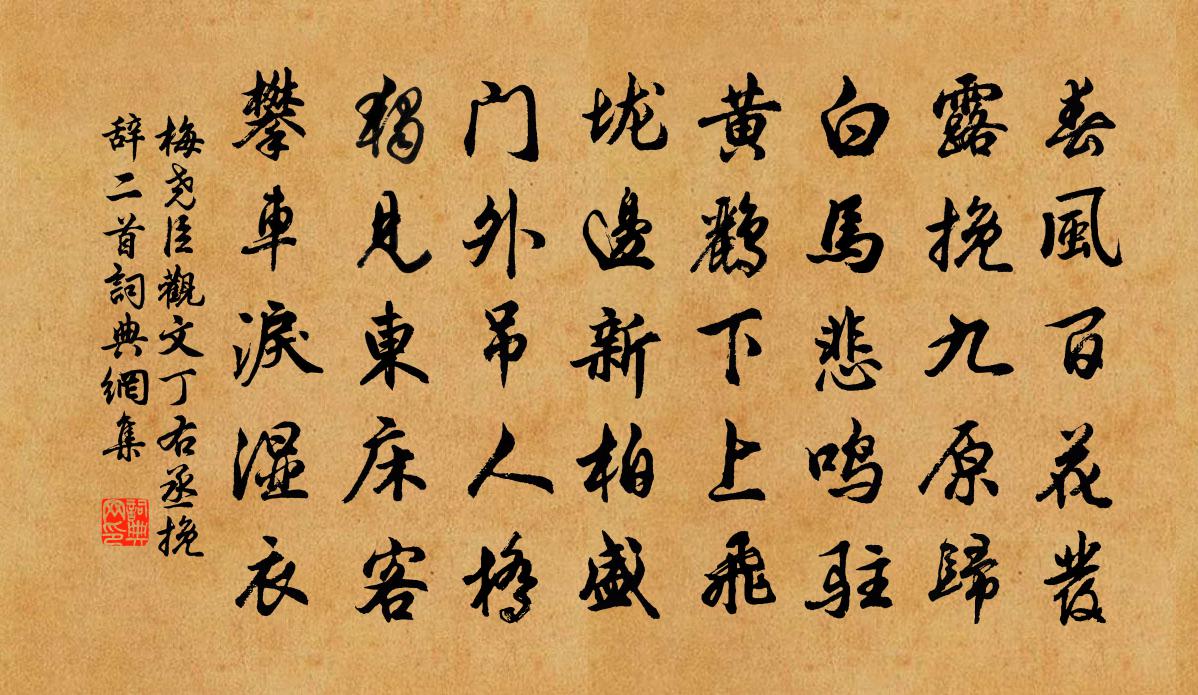 春風百花發
露挽九原歸
白馬悲鸣駐
黄鸝下上飛
垅邊新柏盛
门外吊人橋
獨見東床客
攀車淚湿衣
梅尧臣觀文丁右丞挽
辞二首詞典網集